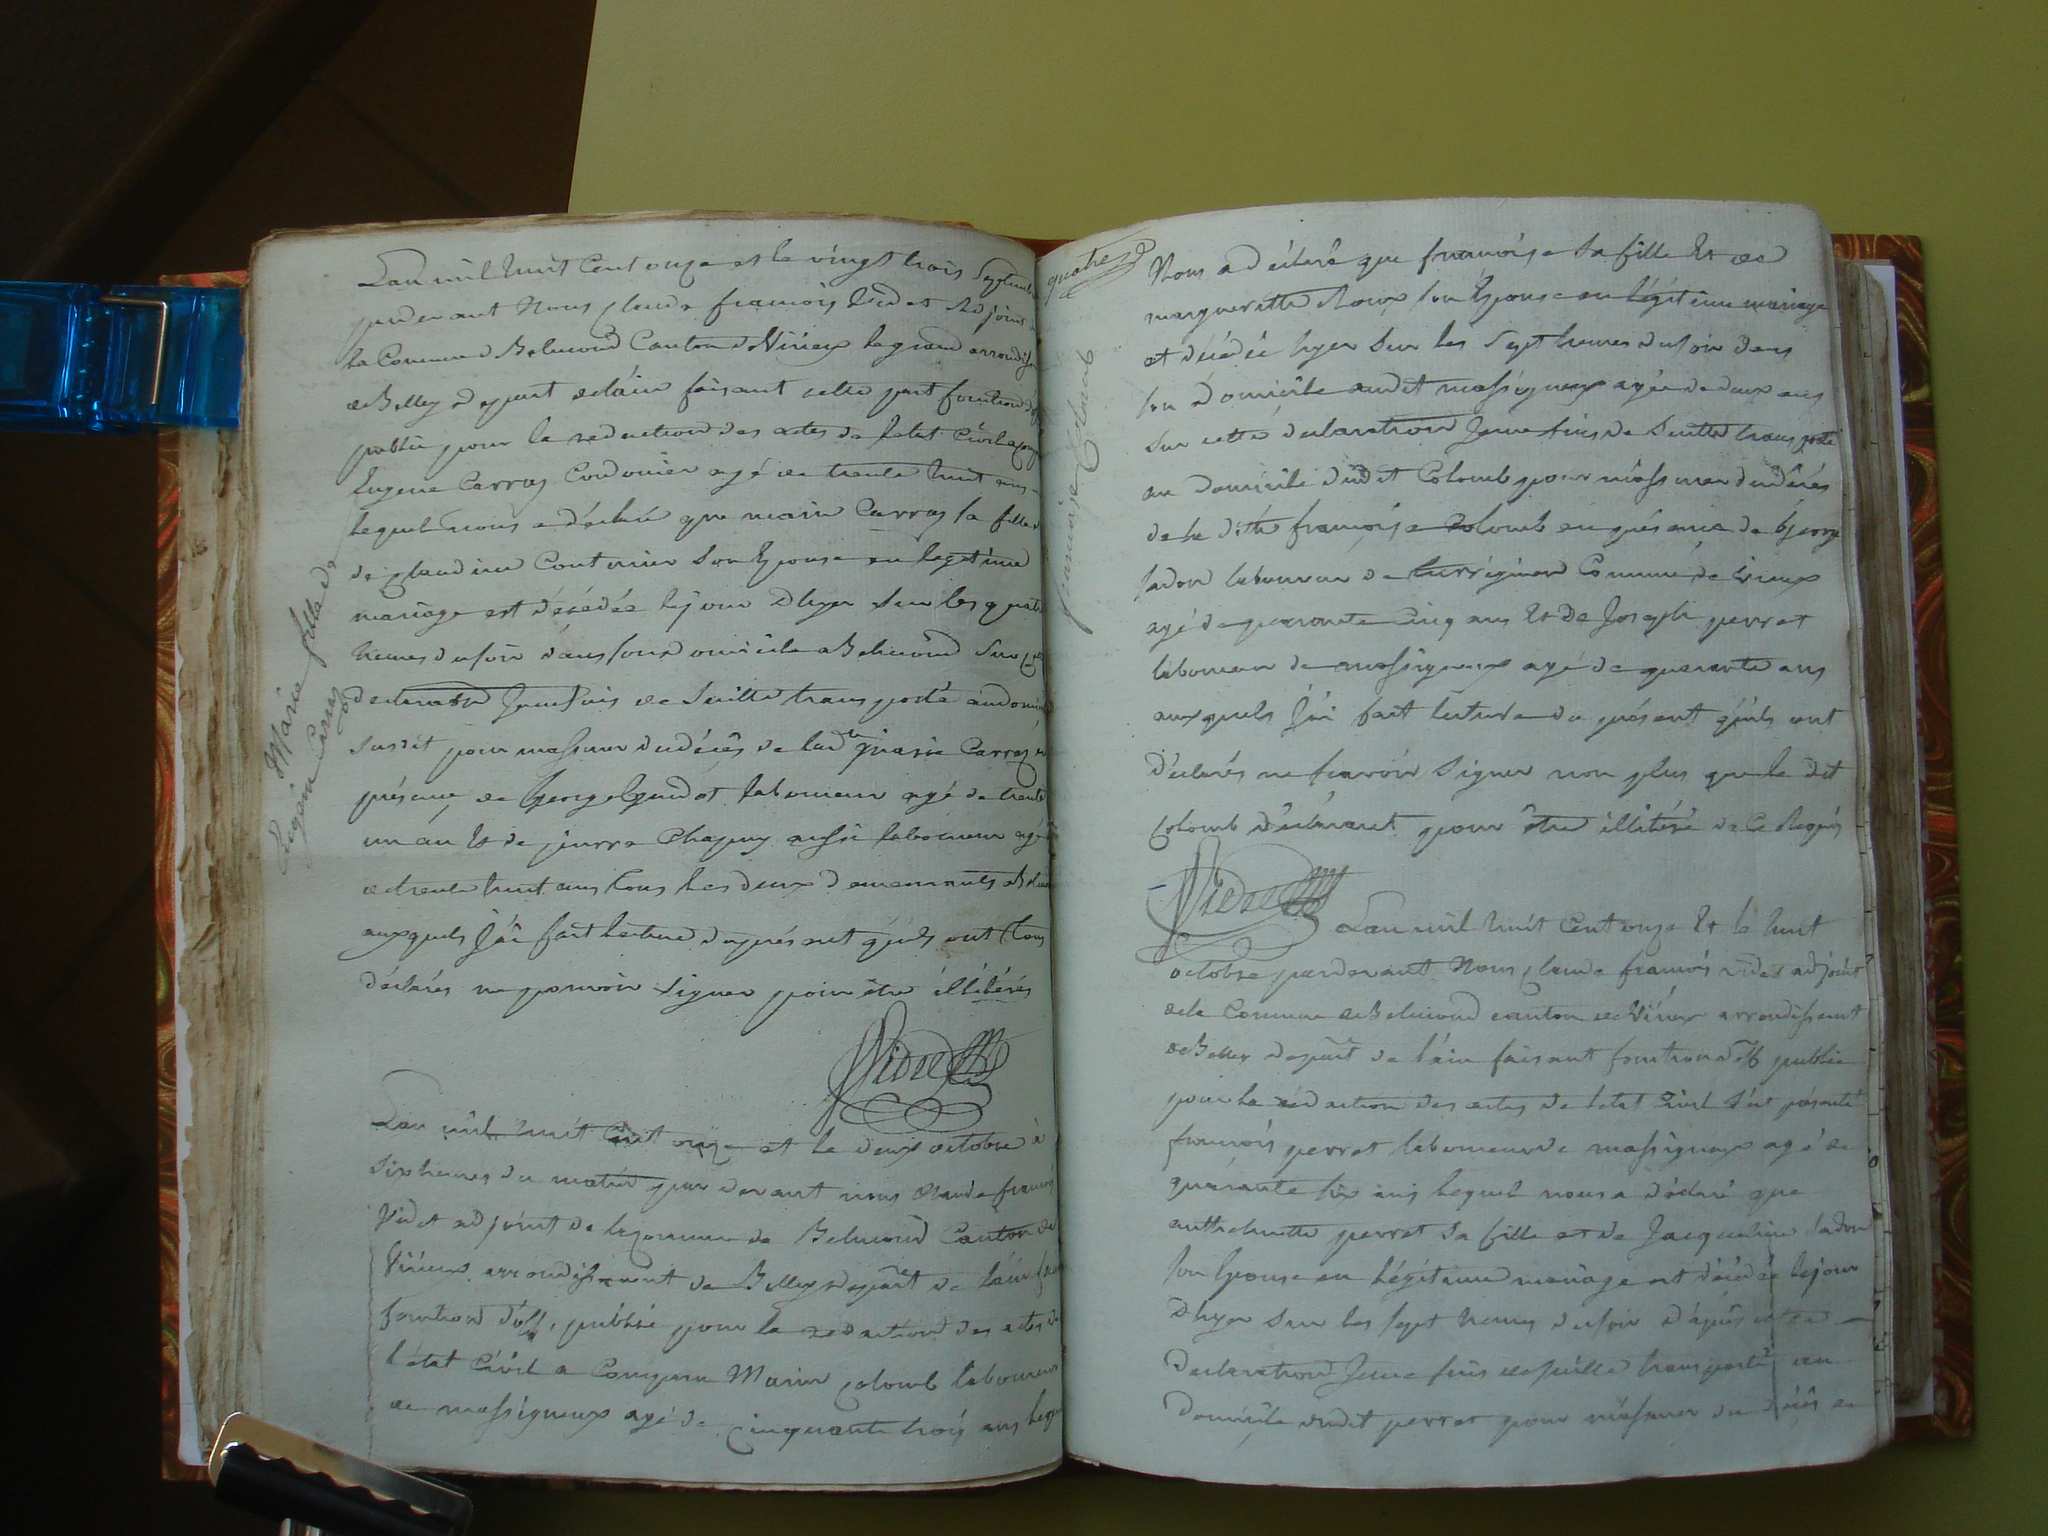 Lan mil huit Cent onze et le vingt trois Septemb
pardevant Nous Claude françois Videt Adjoint
la Commune d Belmond Canton d Virieux le grand arrondiss
de Belley depart de lain faisant cette part fonction
public pour la redaction des actes de letat Civil a comp
Eugene Carraz Cordonier agé de trente huit ans
lequel nous a déclaré que marie Carraz sa fille
de Claudine Conturier Son Epouse en legetime
mariage est décédée le jour Dhyer Sur les quatre
heures du soir dans son domicile a Belmond Sur
declaration Jeme suis de Suitte transporté au domi
Susdit pour massurer du décès de lad te marie Carraz
présence de George Guidot laboureur agé de trente
un an Et de pierre Chapuy aussi laboureur agé
de trente huit ans tous les deux demeurants a Bel
auxquels Jái fait lecture du présent quils ont tous
déclarés ne pouvoir Signer pour être illitérés
Videt
Marie fille de
Eugein Carraz
Lan mil huit Cent onze et le deux octobre à
Six heures du matin par devant nous Claude françois
Videt adjoint de la Commune de Belmond Canton de
Virieux arrondissement de Belley depart de lain
fonction d'off. public pour la redaction des actes de
l'état Civil a Comparu Marin Colomb laboureur
de massigneux agé de Cinquante trois ans lequel
françoise Colomb
Nous a déclaré que françoise Sa fille Et de
margueritte Roux son Epouse en légitime mariage
et décédée hyer Sur les Sept heures du soir dans
son domicile audit massigneux agée de deux ans
Sur cette déclaration Jeme suis de Suitte transporté
au Domicile dudit Colomb pour m'assurer du décés
de la ditte françoise Colomb en présence de
Jadon laboureur de Commune de Virieux
agé de quarante Cinq ans Et De Joseph perret
laboureur de massigneux agé de quarante ans
auxquels Jái fait lecture du présent quils ont
déclarés ne savoir Signer non plus que le dit
Colomb déclarant pour être illitéré de Ce Requis
Videt
Lan mil huit Cent onze Et le huit
octobre pardevant Nous Claude françois videt adjoint
de la Commune de Belmond canton de Virieux arrondissement
de Belley depart de láin faisant fonction d'off public
pour la rédaction des actes de letat Civil s'est présenté
francois perret laboureur de massigneux agé de
quarante six ans lequel nous a déclaré que
anthelmette perret Sa fille et de Jacqueline Jadon
Son Epouse en légitime mariage est décédée le jour
Dhyer Sur les sept heures du soir D'aprés cette
Declaration Jeme suis de suitte transporté au
Domicile dudit perret pour m'assurer du décès de